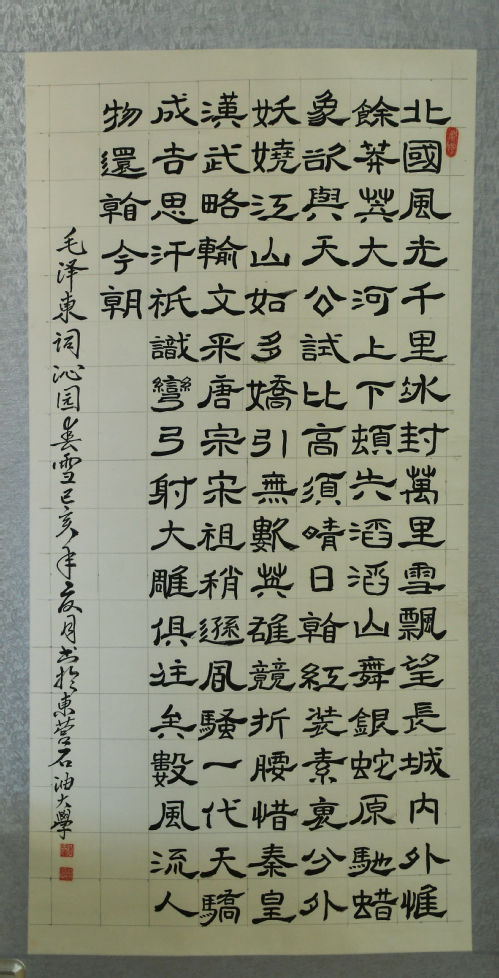 北國風光千里冰封萬里雪飄望長城內外惟
餘莽莽大河上下頓失滔滔山舞銀蛇原馳蜡
象欲與天公試比高須晴日看紅裝素裹分外
妖嬈江山如多嬌引無數英雄競折腰惜秦皇
漢武略輸文采唐宗宋祖稍遜風騷一代天驕
成吉思汗祇識彎弓射大雕俱往矣數風流人
物還看今朝
毛泽東词沁园春雪己亥年夏月书於東营石油大學